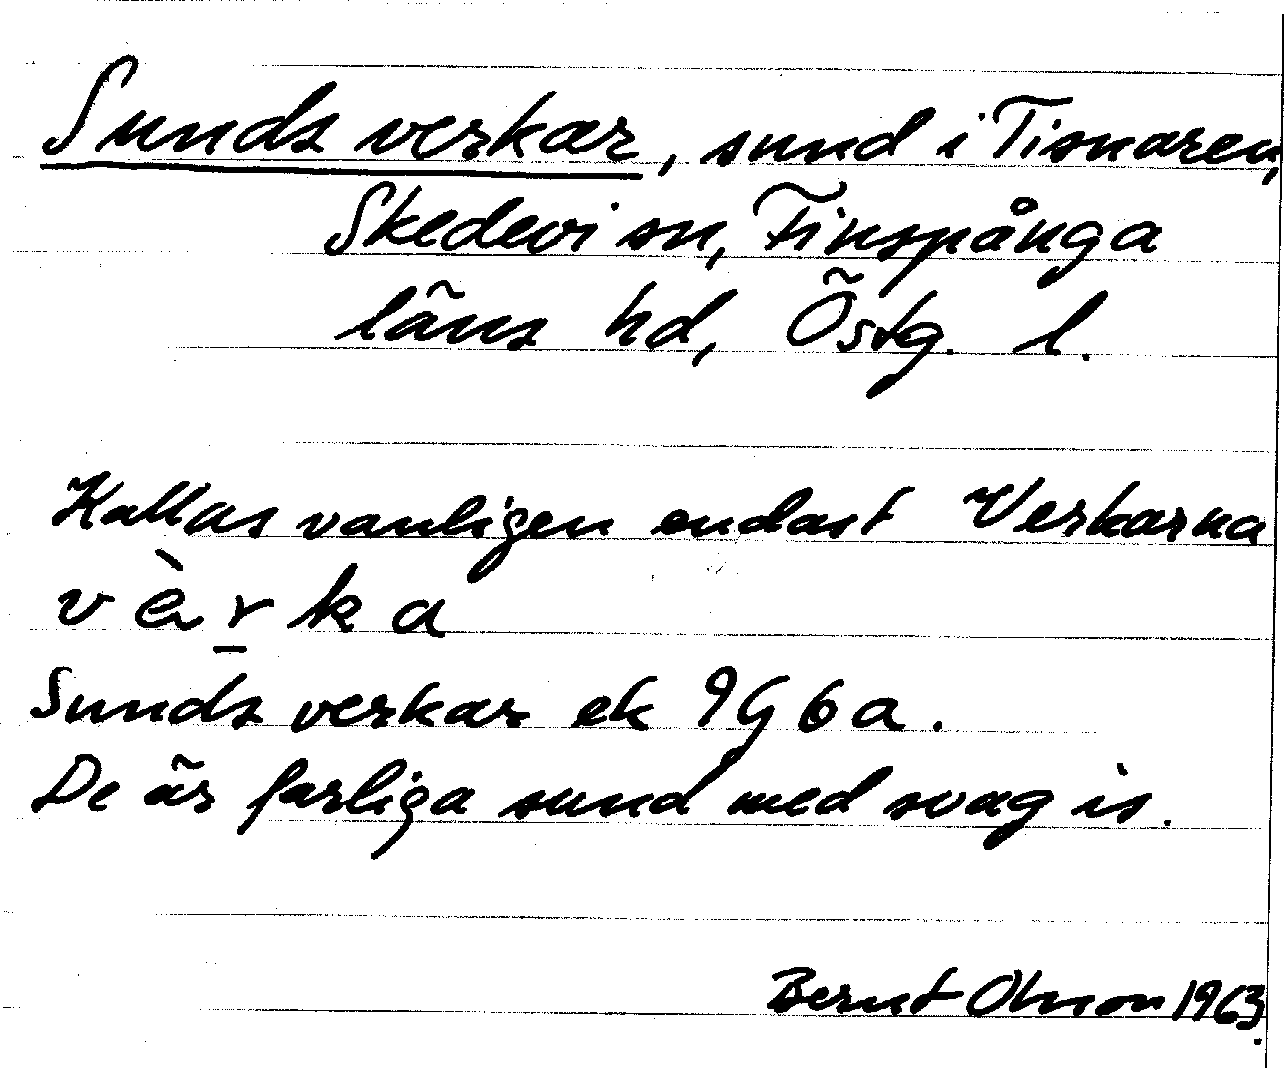 Sunds verkar, sund i Tisnaren,
Skedevi sn, Finspånga
läns hd, Östg. l.
Kallas vanligen endast Verkarna
v è r̲ k a
Sunds verkar ek 9G6a.
De är farliga sund med svag is.
Bernt Olsson 1963.